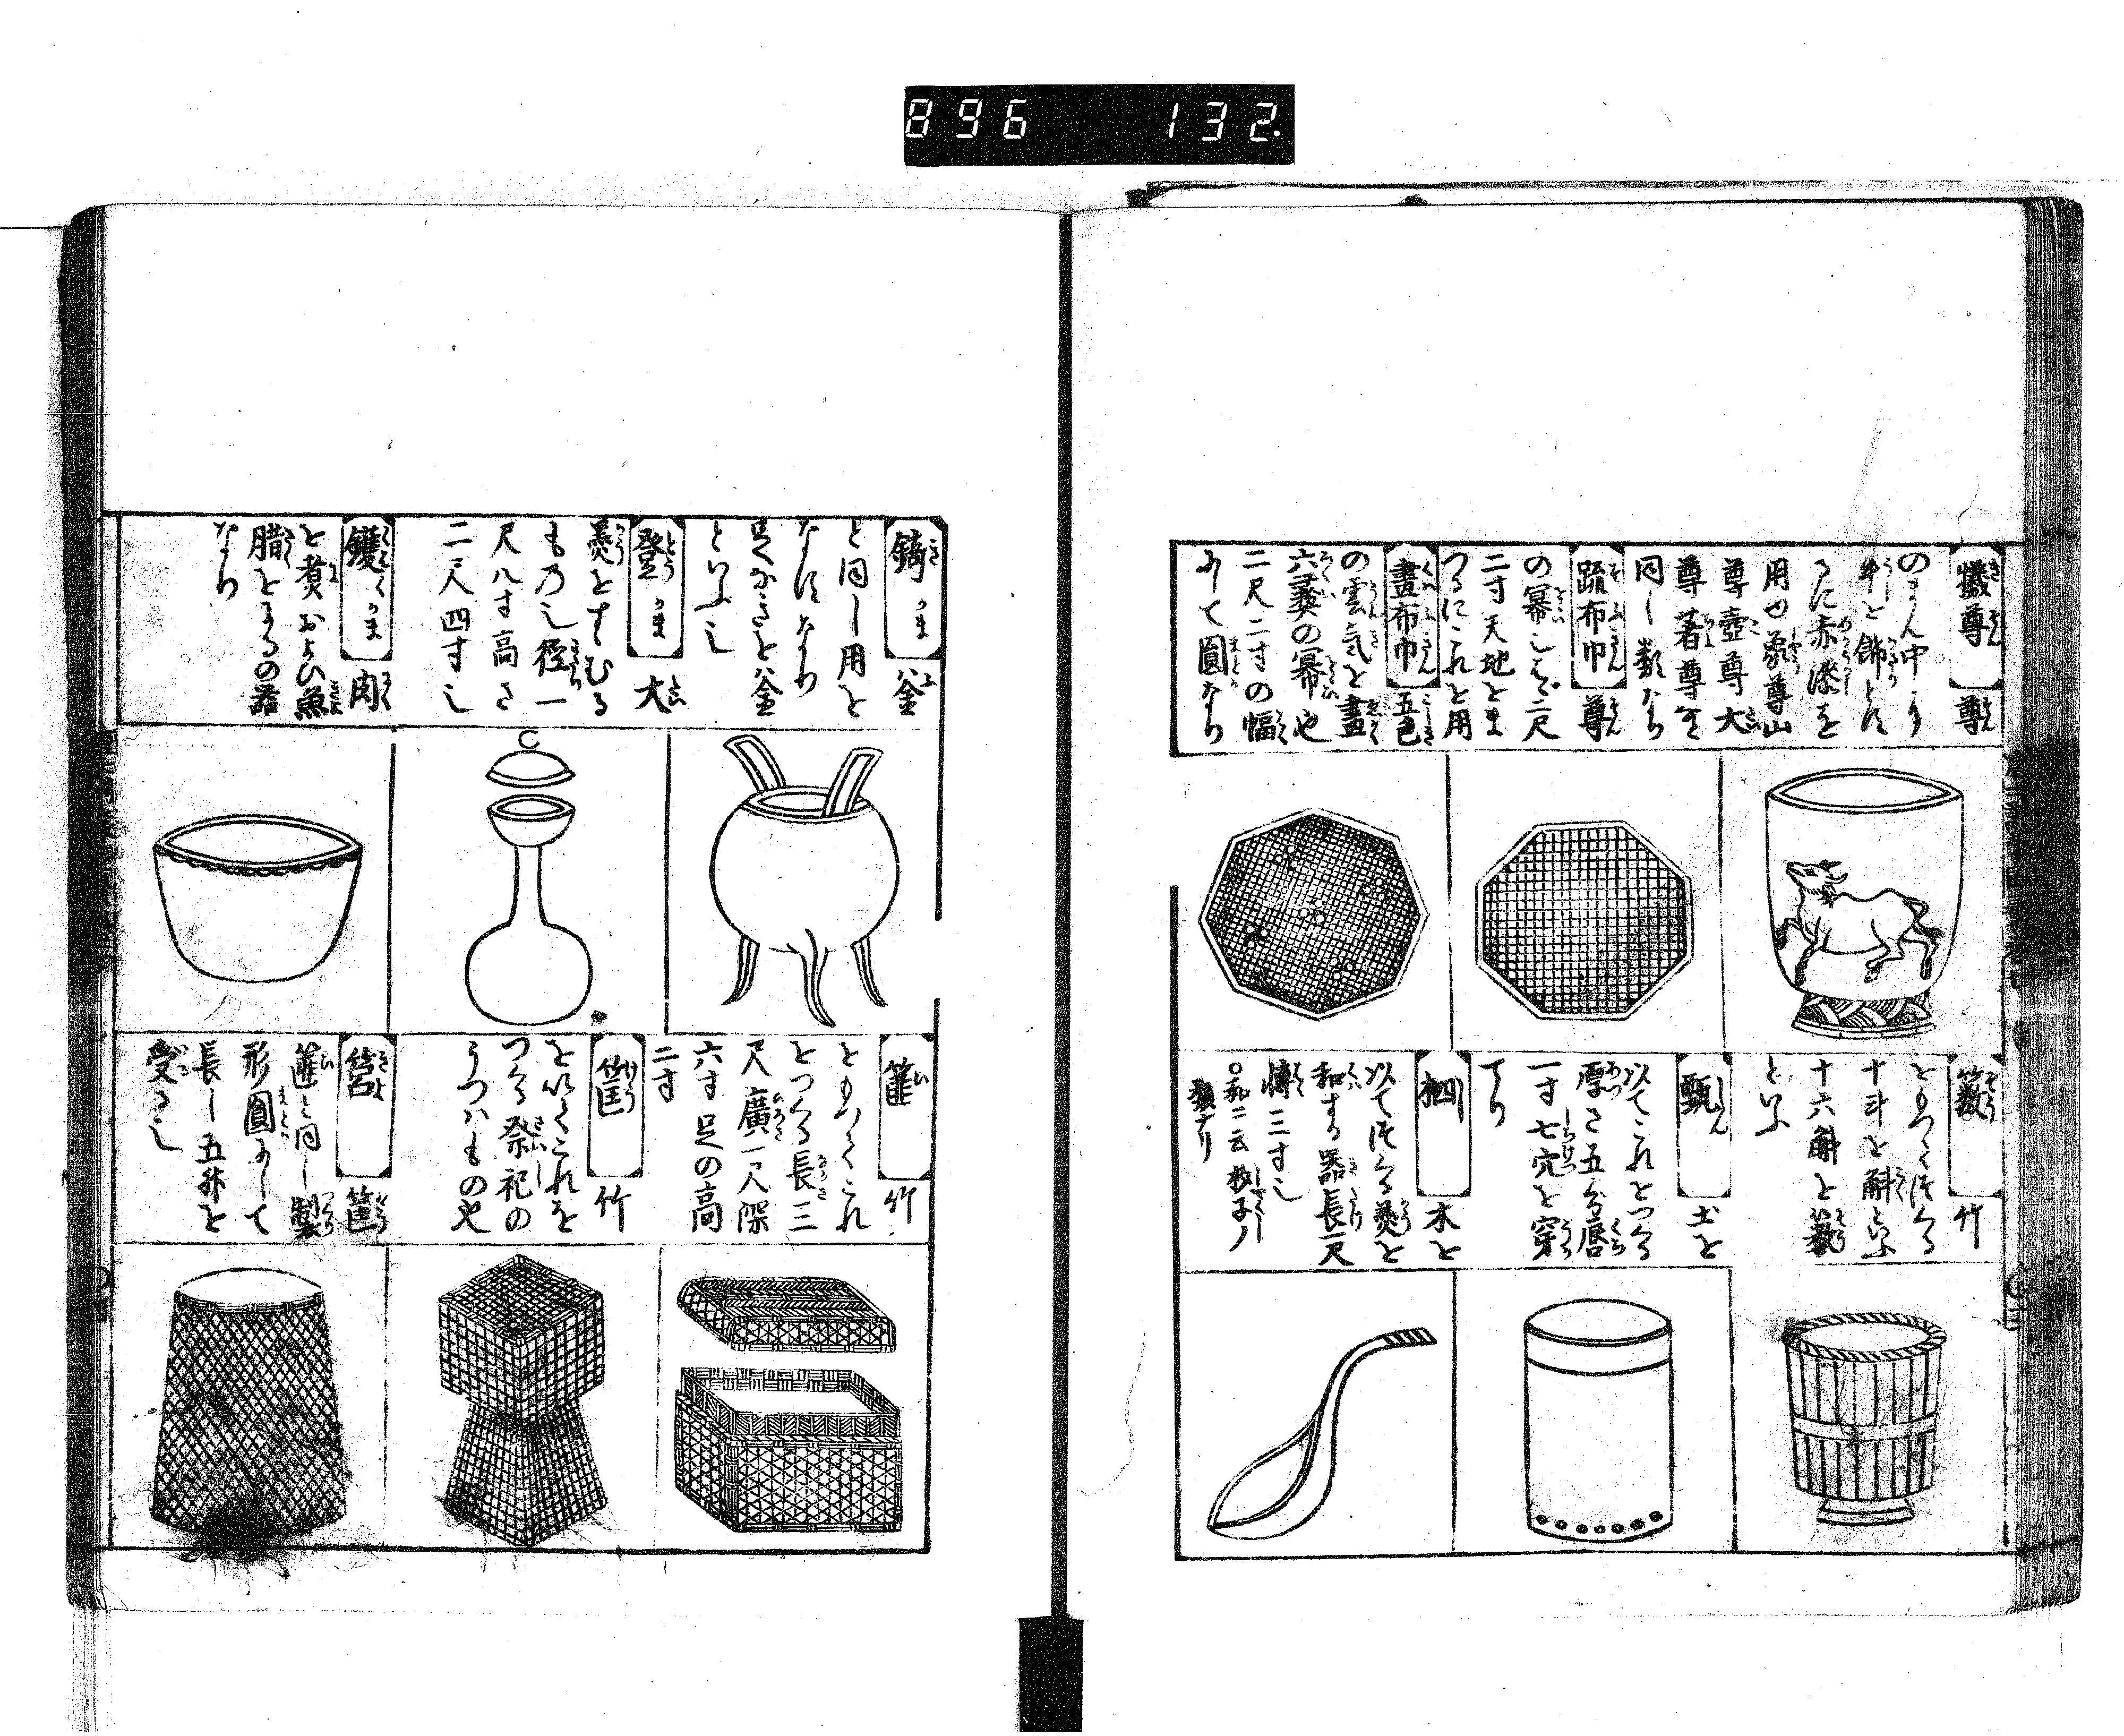 896 132.
犧尊 尊
のまん中に
牛を飾とす
るに赤漆を
用也象尊山
尊壺尊大
尊著尊を
同し数なり
疏布巾 尊
の冪しるべ二尺
二寸天地をま
つるにこれを用
畫布巾 五色
の雲気を畫
六彜の冪也
二尺二寸の幅
にて圓なり
籔 竹
をもつてつくる
十斗を斛といふ
十六斛を籔
といふ
甑 土を
以てこれをつくる
厚さ五分唇
一寸七穴を穿
てり
柶 木を
以てつくる羹を
和する器長一尺
博三寸し
○和ニ云杓子ノ
類ナリ
錡 釜
と同し用を
なすなり
足なきを釜
といふし
登 大
羹をもむる
もの也徑一
尺八寸高さ
二尺四寸し
鑊 肉
を煮および魚
腊をにるの器
なり
篚 竹
をもつてこれ
をつくる長三
尺廣一尺深
六寸足の高
二寸
筐 竹
を以てこれを
つくる祭祀の
うつはもの也
筥 筐
篚と同し製
形圓にして
長し五升を
受るし